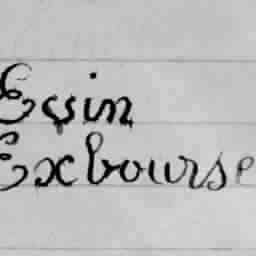 Essin
Exbourse